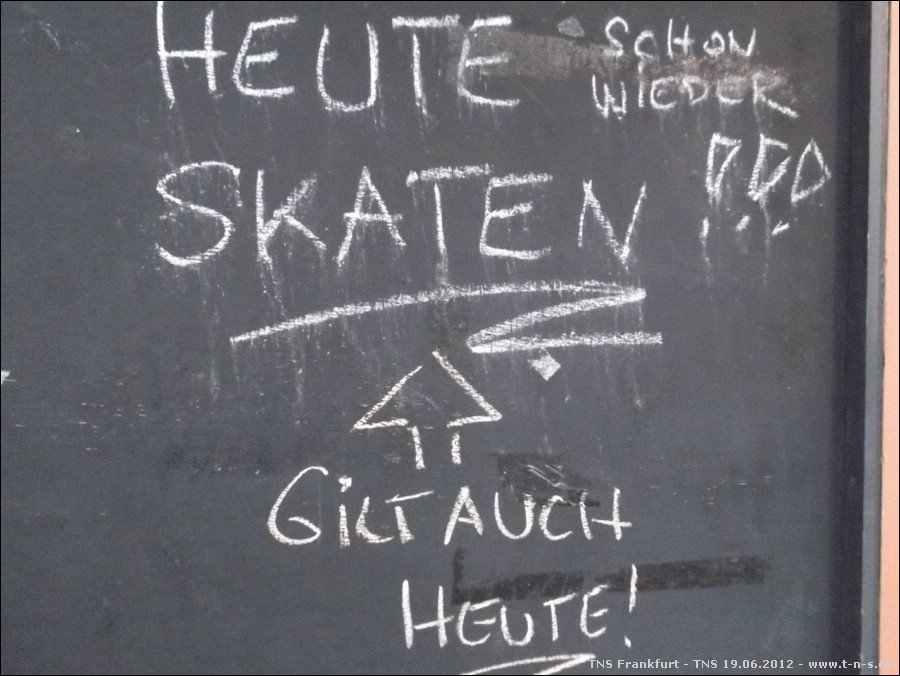 HEUTE SCHON
WIEDER
!!!
SKATEN
GiLT AUCH
HEUTE!
TNS Frankfurt - TNS 19.06.2012 - www.t-n-s.de